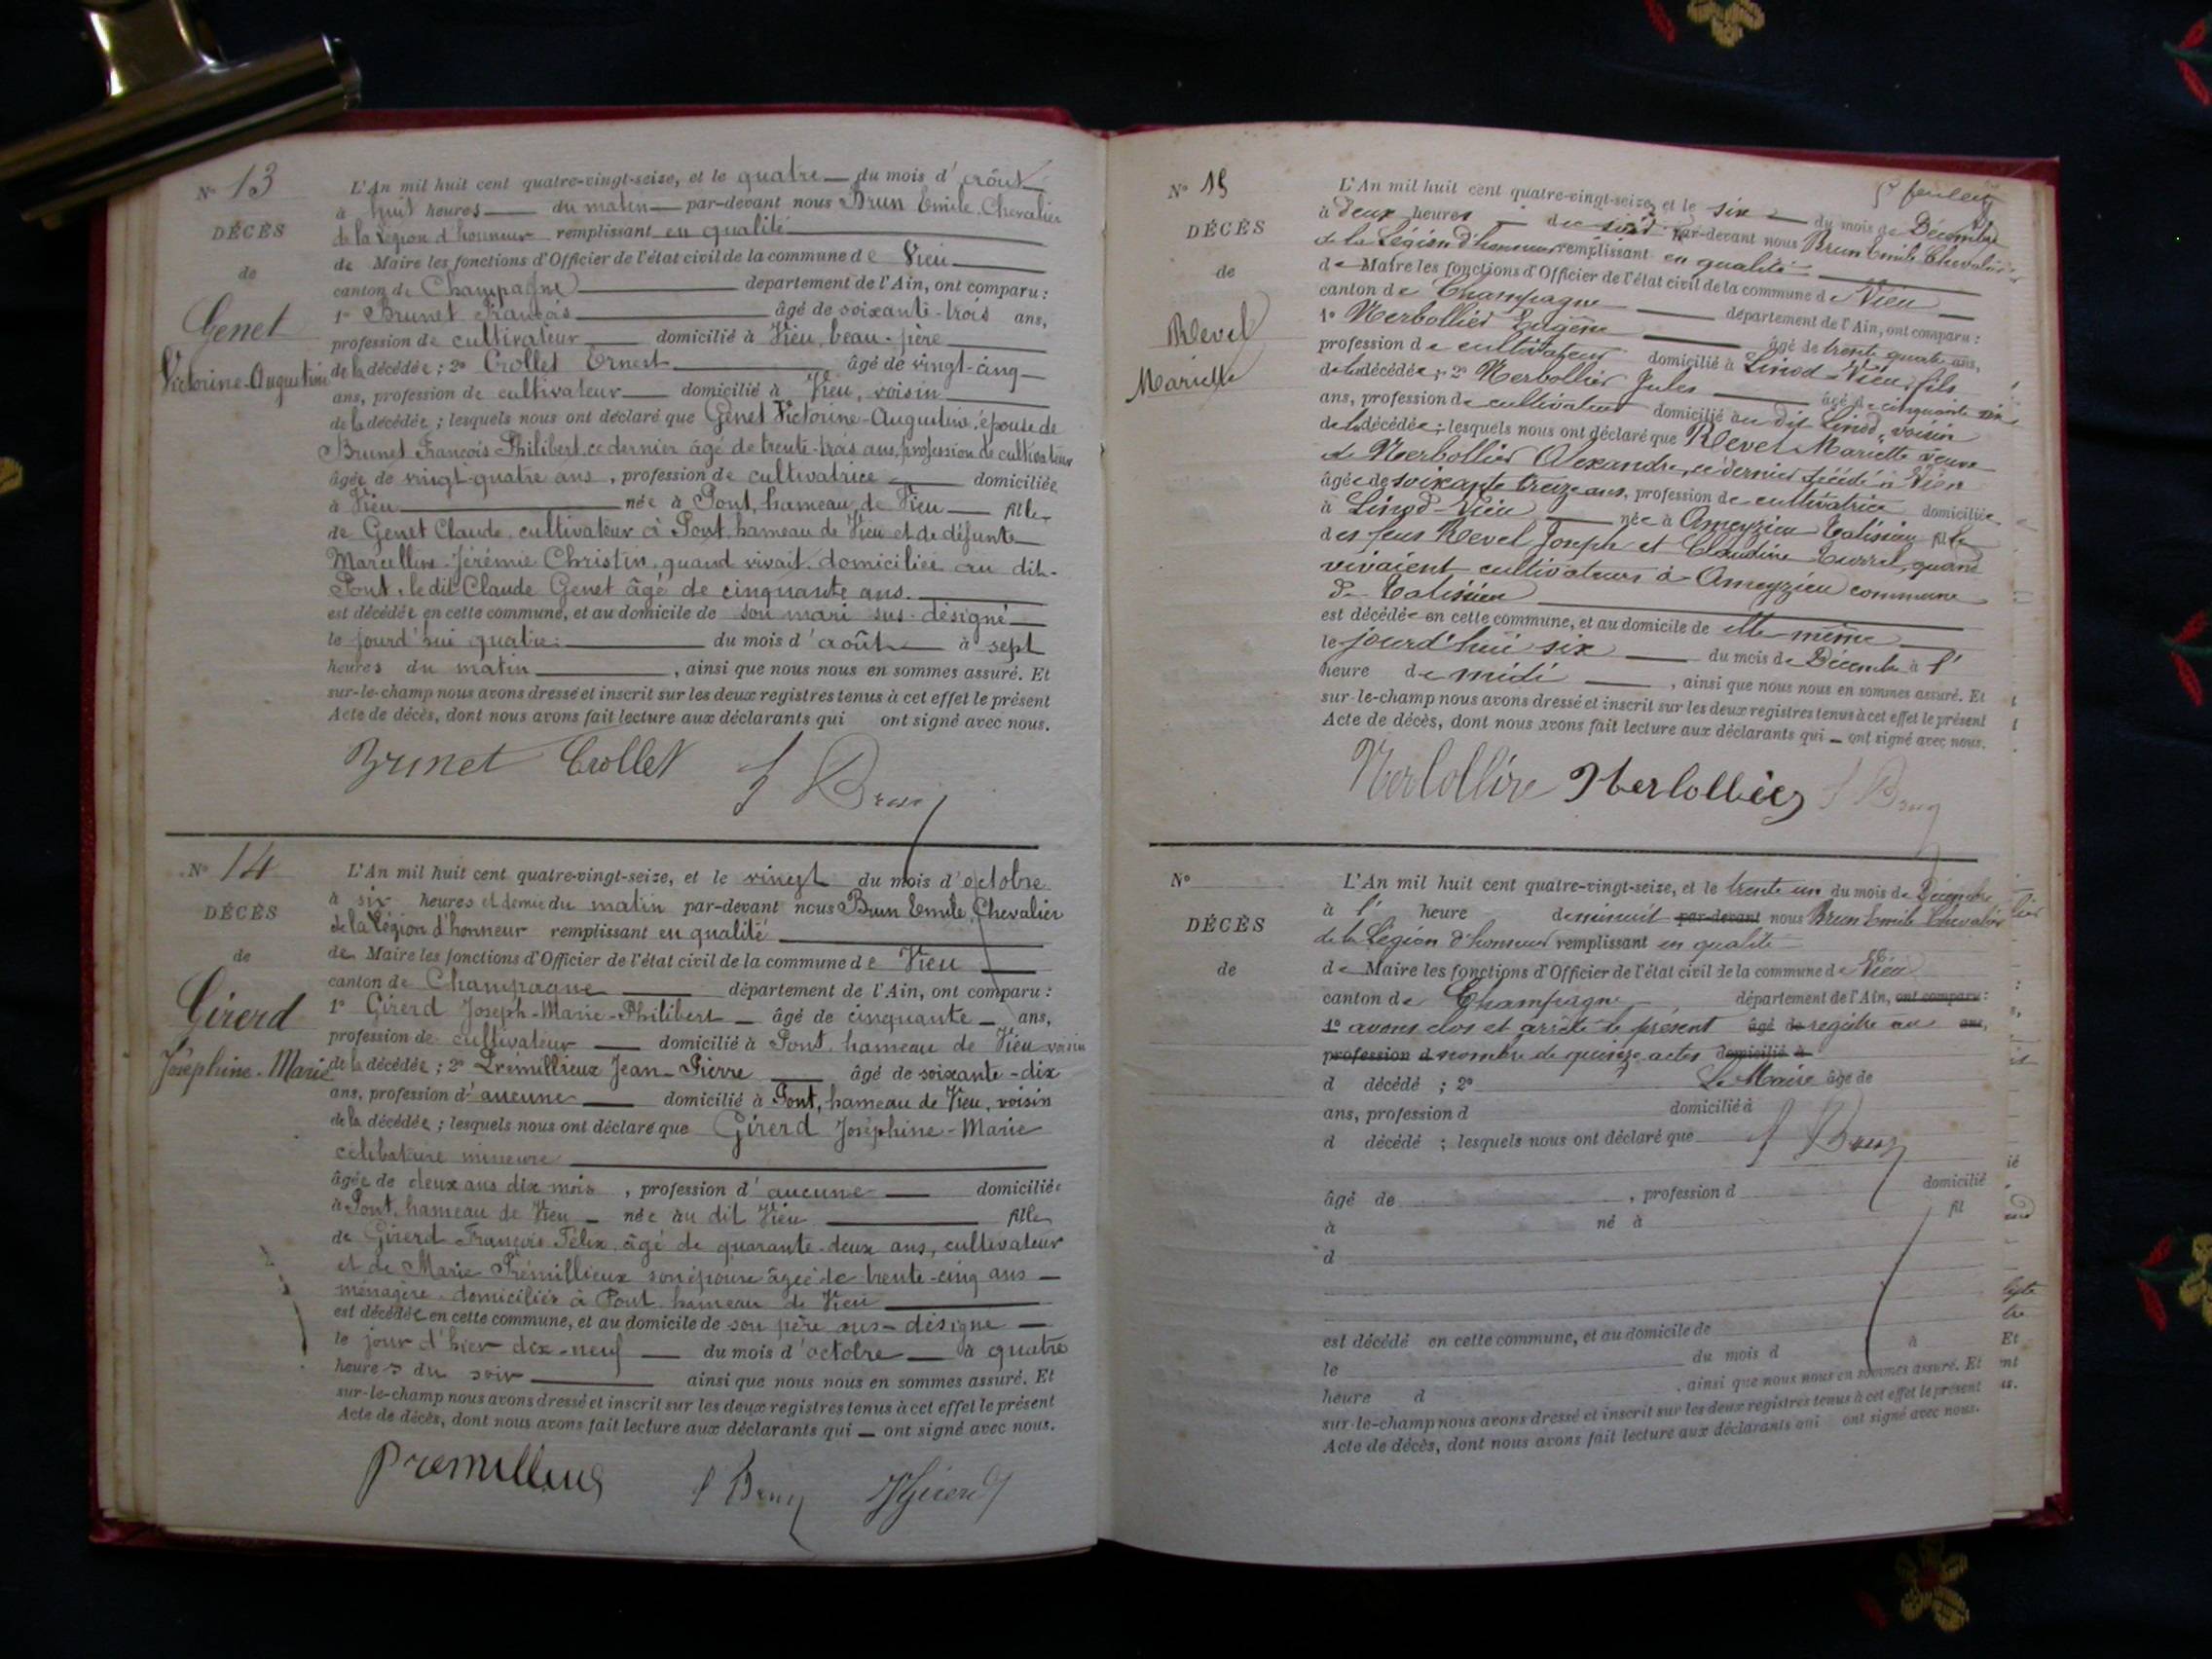 N° 13
DÉCÈS
de
Genet
Victorine-Augustine
L'An mil huit cent quatre-vingt-seize, et le quatre du mois d'août
à huit heures du matin par-devant nous Brun Emile, Chevalier
de la Légion d'honneur remplissant en qualité
de Maire les fonctions d'Officier de l'état civil de la commune de Vieu
canton de Champagne département de l'Ain, ont comparu :
1° Brunet François âgé de soixante-trois ans,
profession de cultivateur domicilié à Vieu, beau-père
de la décédée ; 2° Crollet Ernest âgé de vingt-cinq
ans, profession de cultivateur domicilié à Vieu, voisin
de la décédée ; lesquels nous ont déclaré que Genet Victorine-Augustine, épouse de
Brunet François Philibert, ce dernier âgé de trente-trois ans, profession de cultivateur
âgée de vingt-quatre ans, profession de cultivatrice domiciliée
à Vieu née à Pont, hameau de Vieu fille
de Genet Claude, cultivateur à Pont hameau de Vieu et de défunte
Marcelline-Jérémie Christin, quand vivait domiciliée au dit-
Pont, le dit Claude Genet âgé de cinquante ans.
est décédée en cette commune, et au domicile de son mari sus-désigné
le jourd'hui quatre du mois d'août à sept
heures du matin, ainsi que nous nous en sommes assuré. Et
sur-le-champ nous avons dressé et inscrit sur les deux registres tenus à cet effet le présent
Acte de décès, dont nous avons fait lecture aux déclarants qui ont signé avec nous.
Brunet Crollet E Brun
N° 14
DÉCÈS
de
Girerd
Joséphine-Marie
L'An mil huit cent quatre-vingt-seize, et le vingt du mois d'octobre
à six heures et demie du matin par-devant nous Brun Emile, Chevalier
de la Légion d'honneur remplissant en qualité
de Maire les fonctions d'Officier de l'état civil de la commune de Vieu
canton de Champagne département de l'Ain, ont comparu :
1° Girerd Joseph-Marie-Philibert âgé de cinquante ans,
profession de cultivateur domicilié à Pont, hameau de Vieu voisin
de la décédée ; 2° Prémillieux Jean-Pierre âgé de soixante-dix
ans, profession d'aucune domicilié à Pont, hameau de Vieu, voisin
de la décédée ; lesquels nous ont déclaré que Girerd Joséphine-Marie
célibataire mineure
âgée de deux ans dix mois, profession d'aucune domiciliée
à Pont, hameau de Vieu née au dit Vieu fille
de Girerd François Félix, âgé de quarante-deux ans, cultivateur
et de Marie Prémillieux son épouse âgée de trente-cinq ans
ménagère domiciliés à Pont hameau de Vieu
est décédée en cette commune, et au domicile de son père sus-désigné
le jour d'hier dix-neuf du mois d'octobre à quatre
heures du soir ainsi que nous nous en sommes assuré. Et
sur-le-champ nous avons dressé et inscrit sur les deux registres tenus à cet effet le présent
Acte de décès, dont nous avons fait lecture aux déclarants qui ont signé avec nous.
Premillieux E Brun Girerd
N° 15
DÉCÈS
de
Revel
Mariette
L'An mil huit cent quatre-vingt-seize, et le six du mois de Décembre
à deux heures du soir par-devant nous Brun Emile Chevalier
de la Légion d'honneur remplissant en qualité
de Maire les fonctions d'Officier de l'état civil de la commune de Vieu
canton de Champagne département de l'Ain, ont comparu :
1° Nerbollier Eugène âgé de trente quatre ans,
profession de cultivateur domicilié à Linod-Vieu, fils
de la décédée ; 2° Nerbollier Jules âgé de cinquante six
ans, profession de cultivateur domicilié au dit Linod, voisin
de la décédée ; lesquels nous ont déclaré que Revel Mariette veuve
de Nerbollier Alexandre, ce dernier décédé à Vieu
âgée de soixante treize ans, profession de cultivatrice domiciliée
à Linod-Vieu née à Ameyzieu Talissieu fille
des feus Revel Joseph et Claudine quand
vivaient cultivateurs à Ameyzieu commune
de Talissieu
est décédée en cette commune, et au domicile de elle-même
le jourd'hui six du mois de Décembre à l'
heure de midi, ainsi que nous nous en sommes assuré. Et
sur-le-champ nous avons dressé et inscrit sur les deux registres tenus à cet effet le présent
Acte de décès, dont nous avons fait lecture aux déclarants qui ont signé avec nous.
Nerbollier Nerbollier E Brun
N°
DÉCÈS
de
L'An mil huit cent quatre-vingt-seize, et le trente un du mois de Décembre
à l' heure de minuit par-devant nous Brun Emile Chevalier
de la Légion d'honneur remplissant en qualité
de Maire les fonctions d'Officier de l'état civil de la commune de Vieu
canton de Champagne département de l'Ain, ont comparu :
1° avons clos et arrêté le présent âgé de registre au ans,
profession d nombre de quinze actes domicilié à
d décédé ; 2° Le Maire âgé de
ans, profession d domicilié à
d décédé ; lesquels nous ont déclaré que E Brun
âgé de , profession d domicilié
à né à fil
d
est décédé en cette commune, et au domicile de
le du mois d à
heure d , ainsi que nous nous en sommes assuré. Et
sur-le-champ nous avons dressé et inscrit sur les deux registres tenus à cet effet le présent
Acte de décès, dont nous avons fait lecture aux déclarants qui ont signé avec nous.